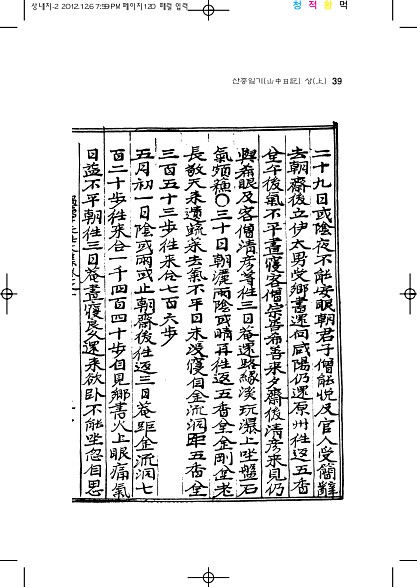 상내지-2 2012.12.6 7:59 PM 페이지120 매령 입력
청 적 황 먹
산중일기(山中日記) 상(上) 39
二十九日或陰夜不能安眠朝君子僧能悅及官人受簡辭
去朝齋後立伊太男受鄕書還向咸陽仍還原州往返五香
全午後氣不平晝寢客僧宗善希善來夕齋後淸彦來見仍
與希眼及客僧淸彦等往三日菴還路緣溪玩瀑上坐盤石
氣頗穩○三十日朝灑雨陰或晴再往返五香全金剛全老
長敬天來遺蔬菜去氣不平日未沒寢自金流洞距五香全
三百五十三步往來合七百六步
五月初一日陰或雨或止朝齋後往返三日菴距金流洞七
百二十步往來合一千四百四十步自見鄕書火上眼痛氣
日益不平朝往三日菴晝寢良久還來欲臥不能坐忽自思